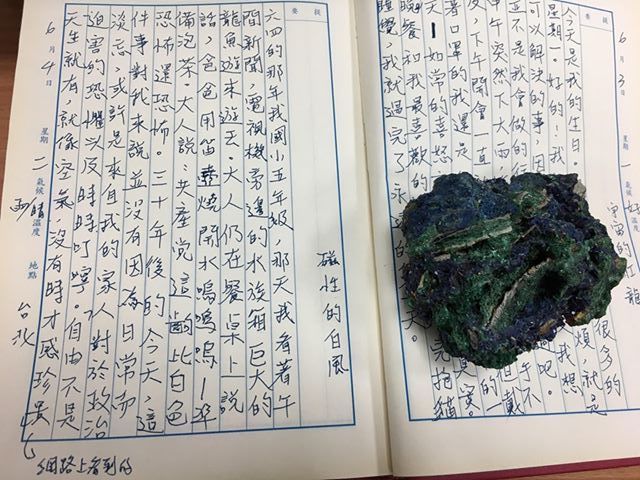 6月3日 星期一 氣候 好
今天是我的生日。 很多的
星期一。好的!我 我想
可以解決的事,因 煩,就是
並不是我會做的 吧。
中午突然下大雨 手不
後,下午開會一直 但戴
著口罩的我還是 的一
天—如常的喜怒
晚餐和我最喜歡的 完抱貓
睡覺,我就過完了永 天。
摘要
磁性的白風
六四的那年我國小五年級,那天我看著午
間新聞,電視機旁邊的水族箱巨大的
龍魚遊來遊去。大人仍在餐桌上說
話,爸爸用笛壺燒開水嗚嗚嗚—準
備泡茶。大人說:共產党這齣比白色
恐怖還恐怖。三十年後的今天,這
件事對我來說並沒有因為日常而
淡忘,或許是來自我的家人對於政治
迫害的恐懼以及時時叮嚀。自由不是
天生就有,就像空氣,沒有時才感珍貴
網路上看到的
6月4日 星期二 氣候 晴雨 溫度 地點 台北